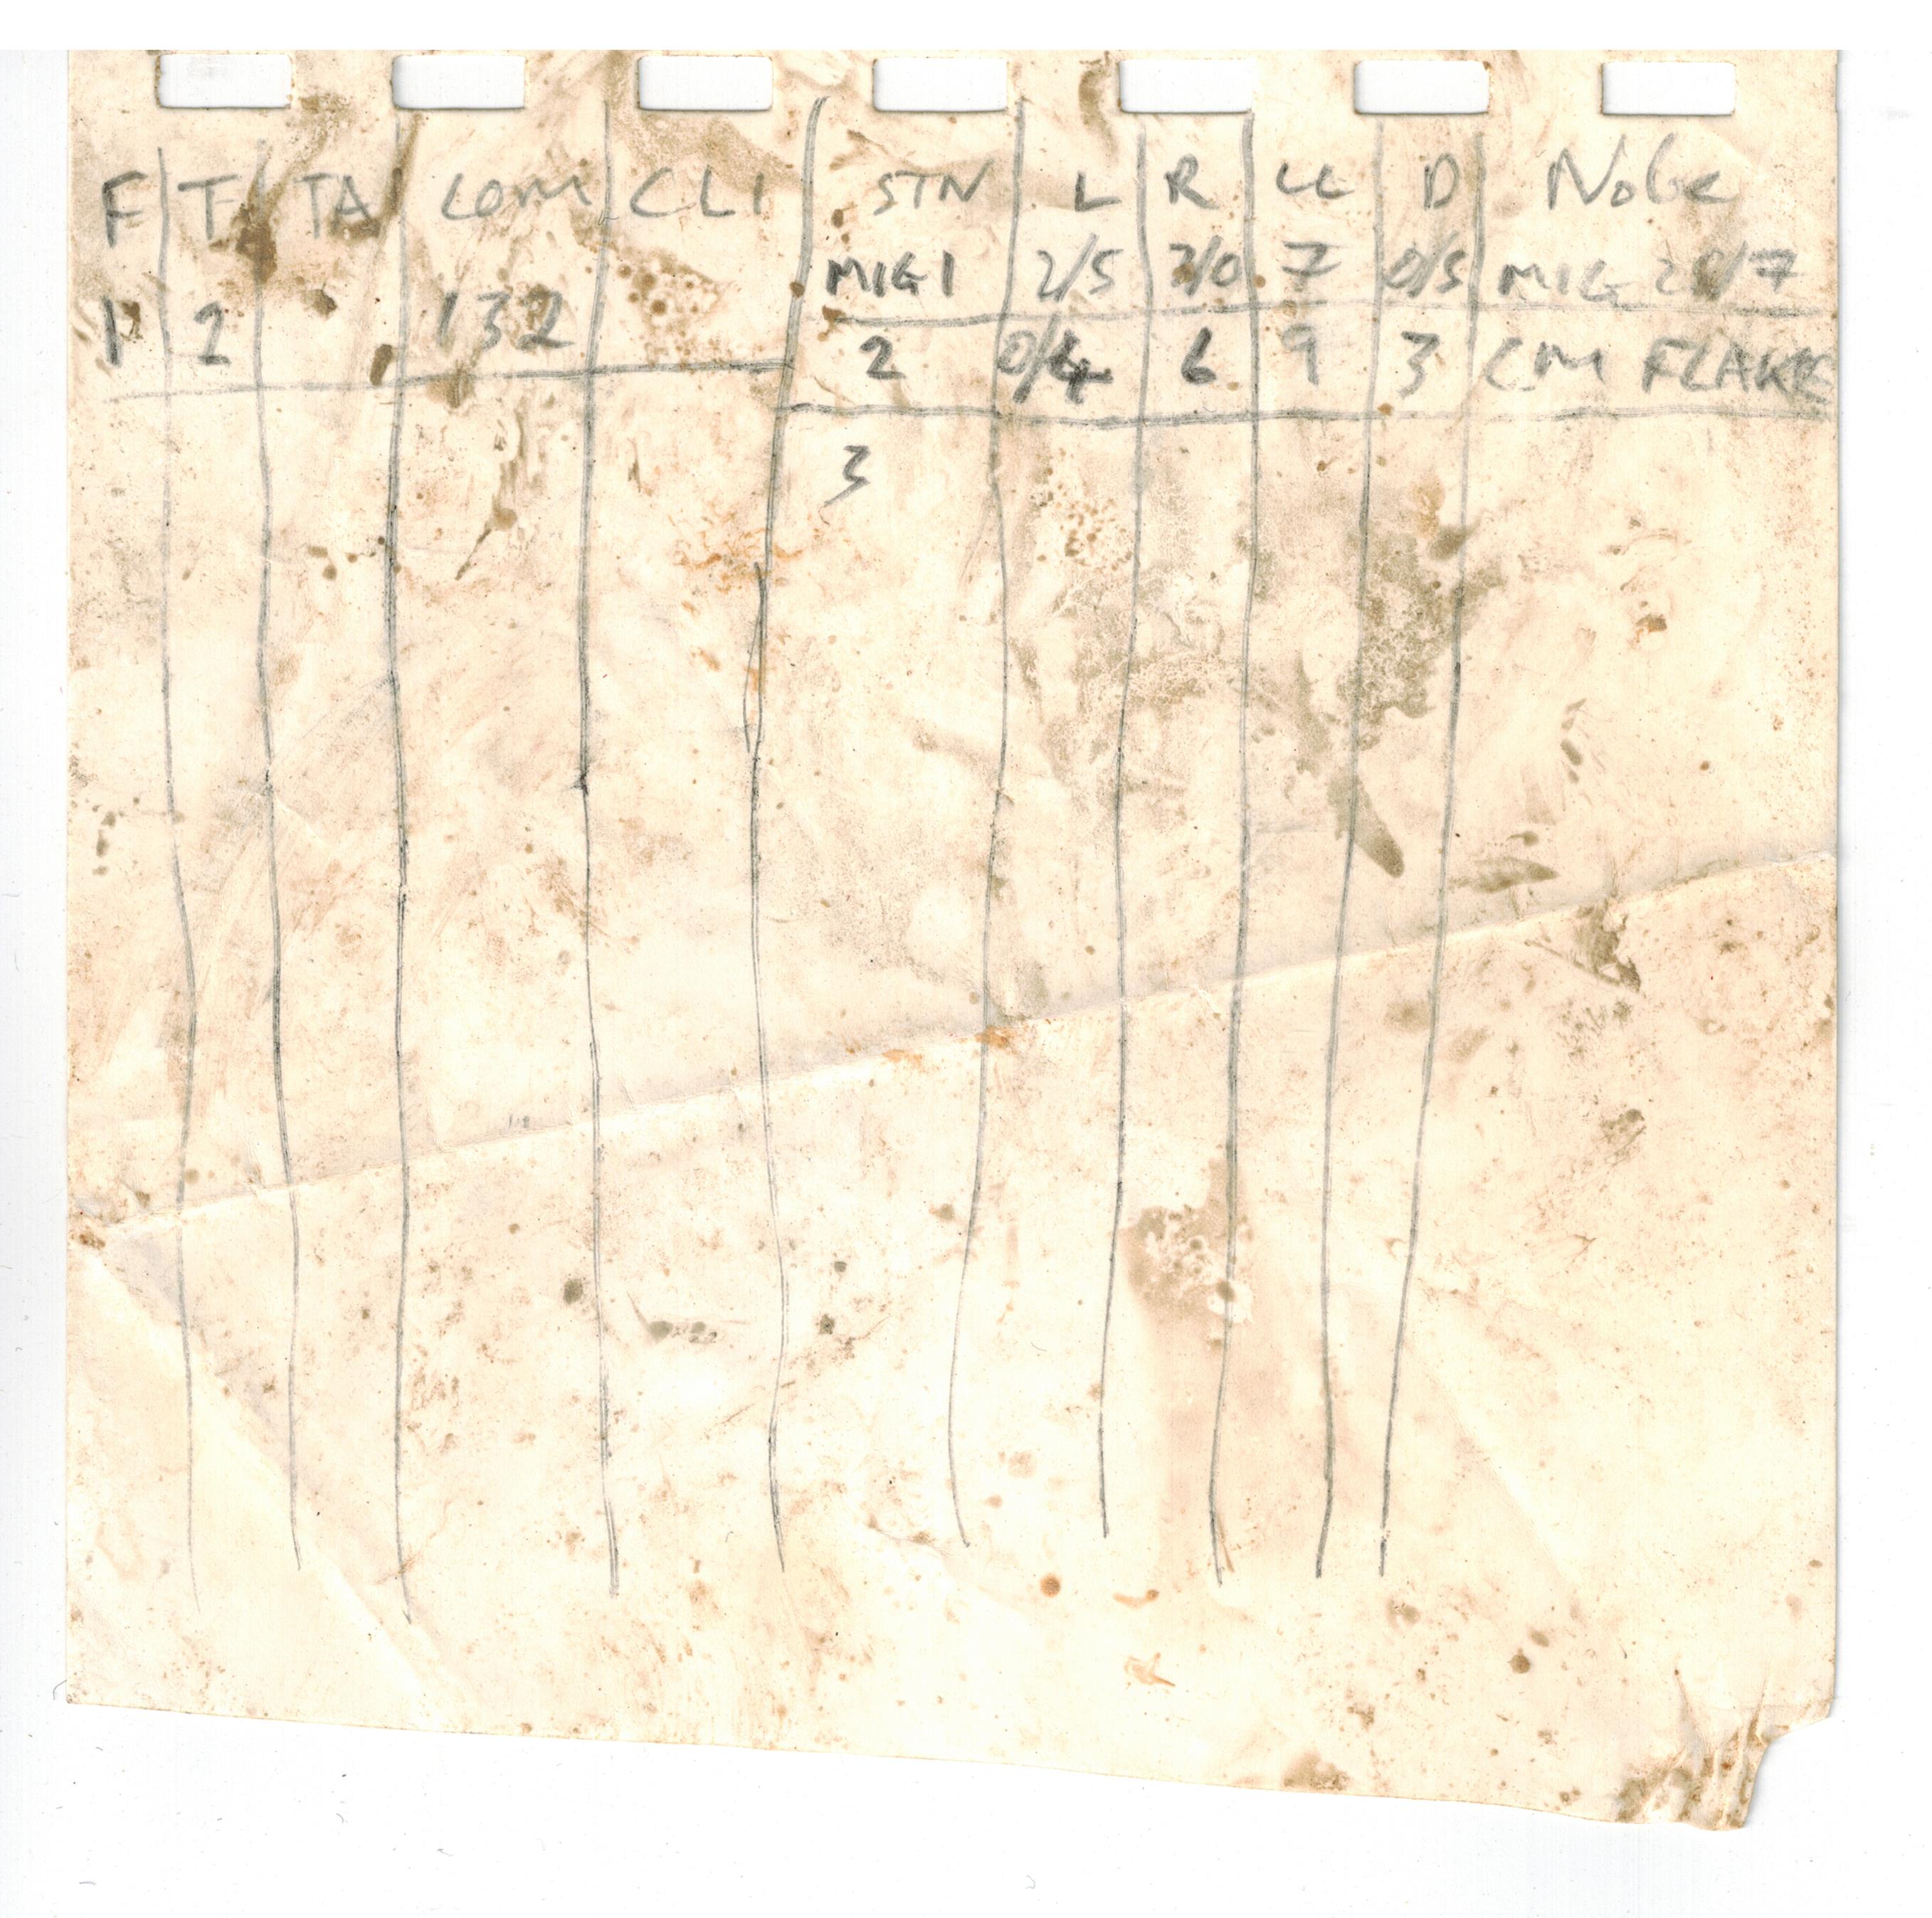 F T TA COM CLI STN L R LL D Note
MIG1 2/5 3/0 7 0/5 MIG 28/7
1 2 132
2 0/4 6 9 3 CM FLAKE
3